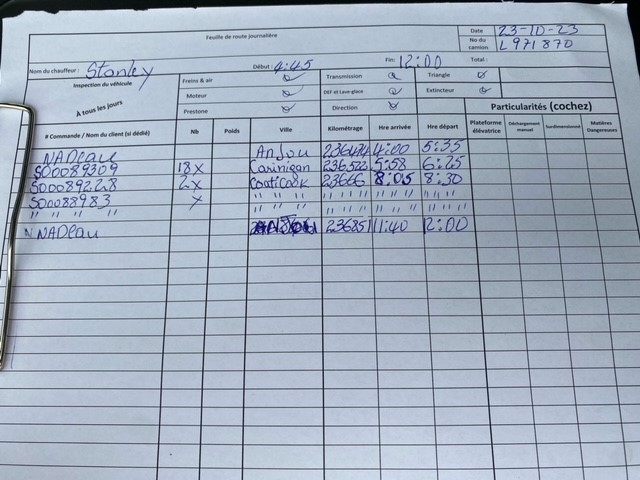 Feuille de route journalière
Date 23-10-23
No du camion L971870
Nom du chauffeur : Stanley Début : 4:45 Fin : 12:00 Total :
Inspection du véhicule Freins & air Transmission Triangle
À tous les jours Moteur DEF et Lave-glace Extincteur
Prestone Direction Particularités (cochez)
# Commande / Nom du client (si dédié) Nb Poids Ville Kilométrage Hre arrivée Hre départ Plateforme élévatrice Déchargement manuel Surdimensionné Matières Dangereuses
NADeau Anjou 4:00 5:35
18x 5:58 6:25
S00089228 2x Coaticook 23666 8:05 8:30
S00088983 x " " " " " " " " " " " "
" " " " " " " " " " " " " " " "
NADeau 236851 11:40 12:00